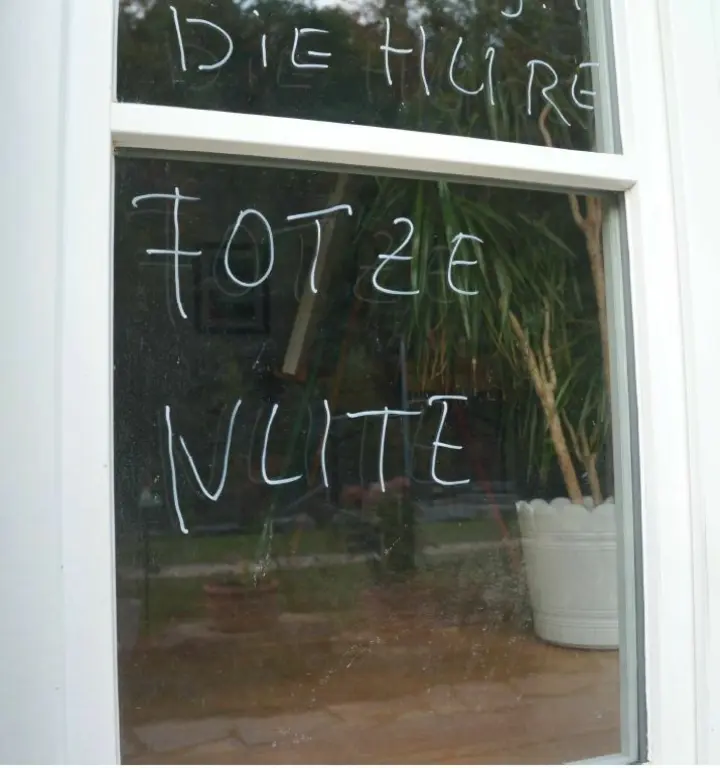 DIE HURE
FOTZE
NUTTE